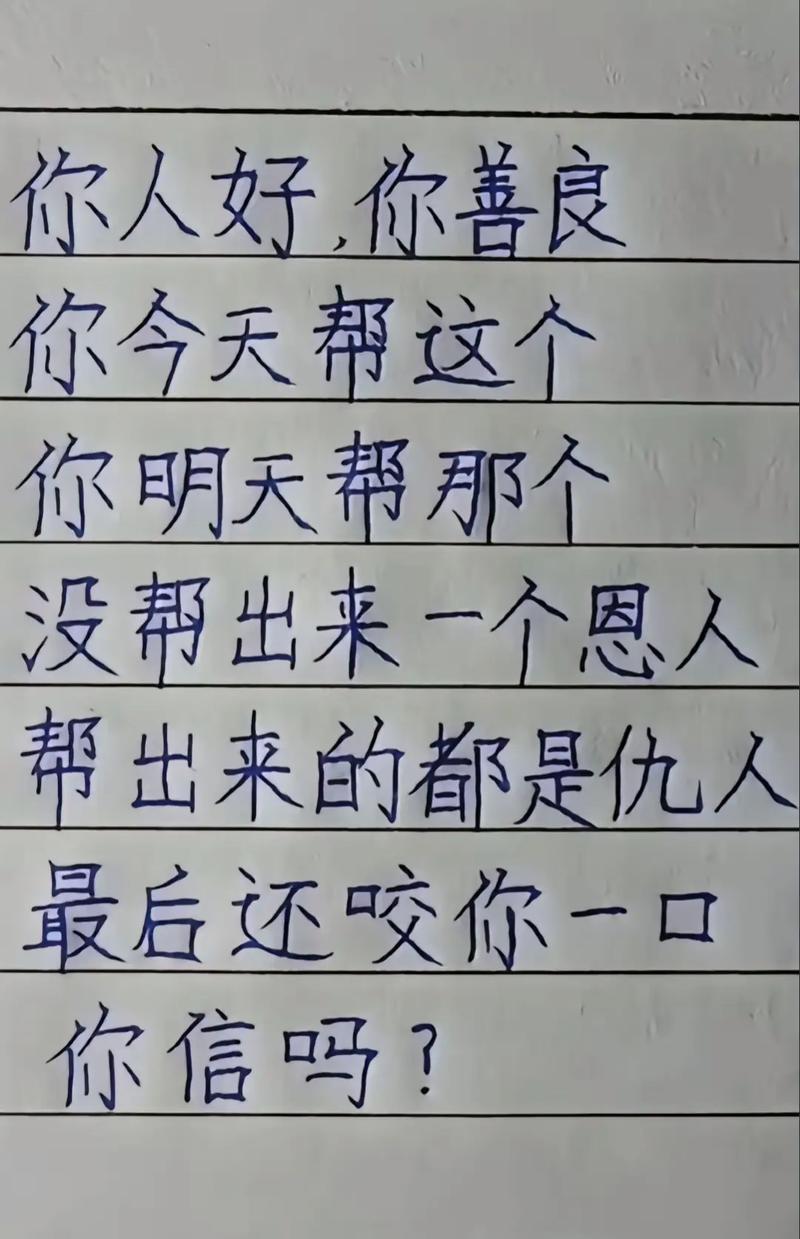 你人好,你善良
你今天帮这个
你明天帮那个
没帮出来一个恩人
帮出来的都是仇人
最后还咬你一口
你信吗?